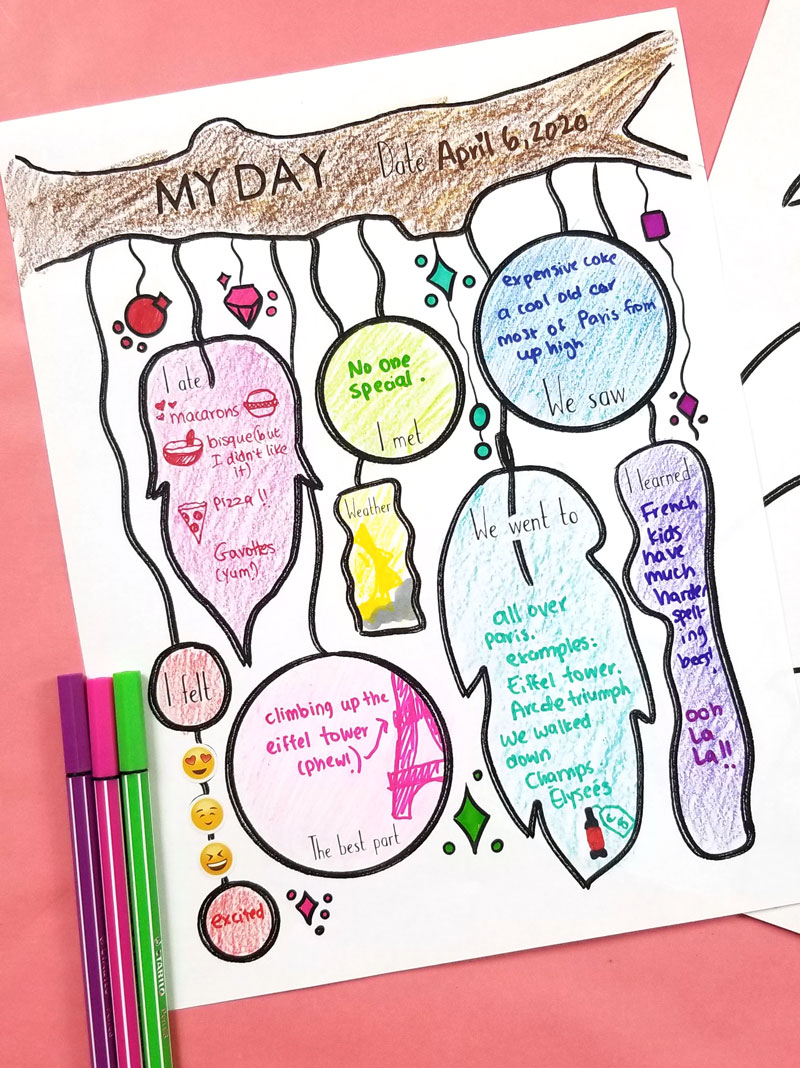 MY DAY Date April 6, 2020
I ate
macarons
bisque (but
I didn't like
it)
Pizza!!
Gavottes
(yum!)
No one
special.
I met
expensive coke
a cool old car
most of Paris from
up high
We saw
Weather
We went to
all over
Paris.
examples:
Eiffel tower.
Arc de triumph
we walked
down
Champs
Elysees
I learned
French
kids
have
much
harder
spell-
ing
bees!
ooh
La
La!!
I felt
excited
climbing up the
eiffel tower
(phew!)
The best part
STABILO